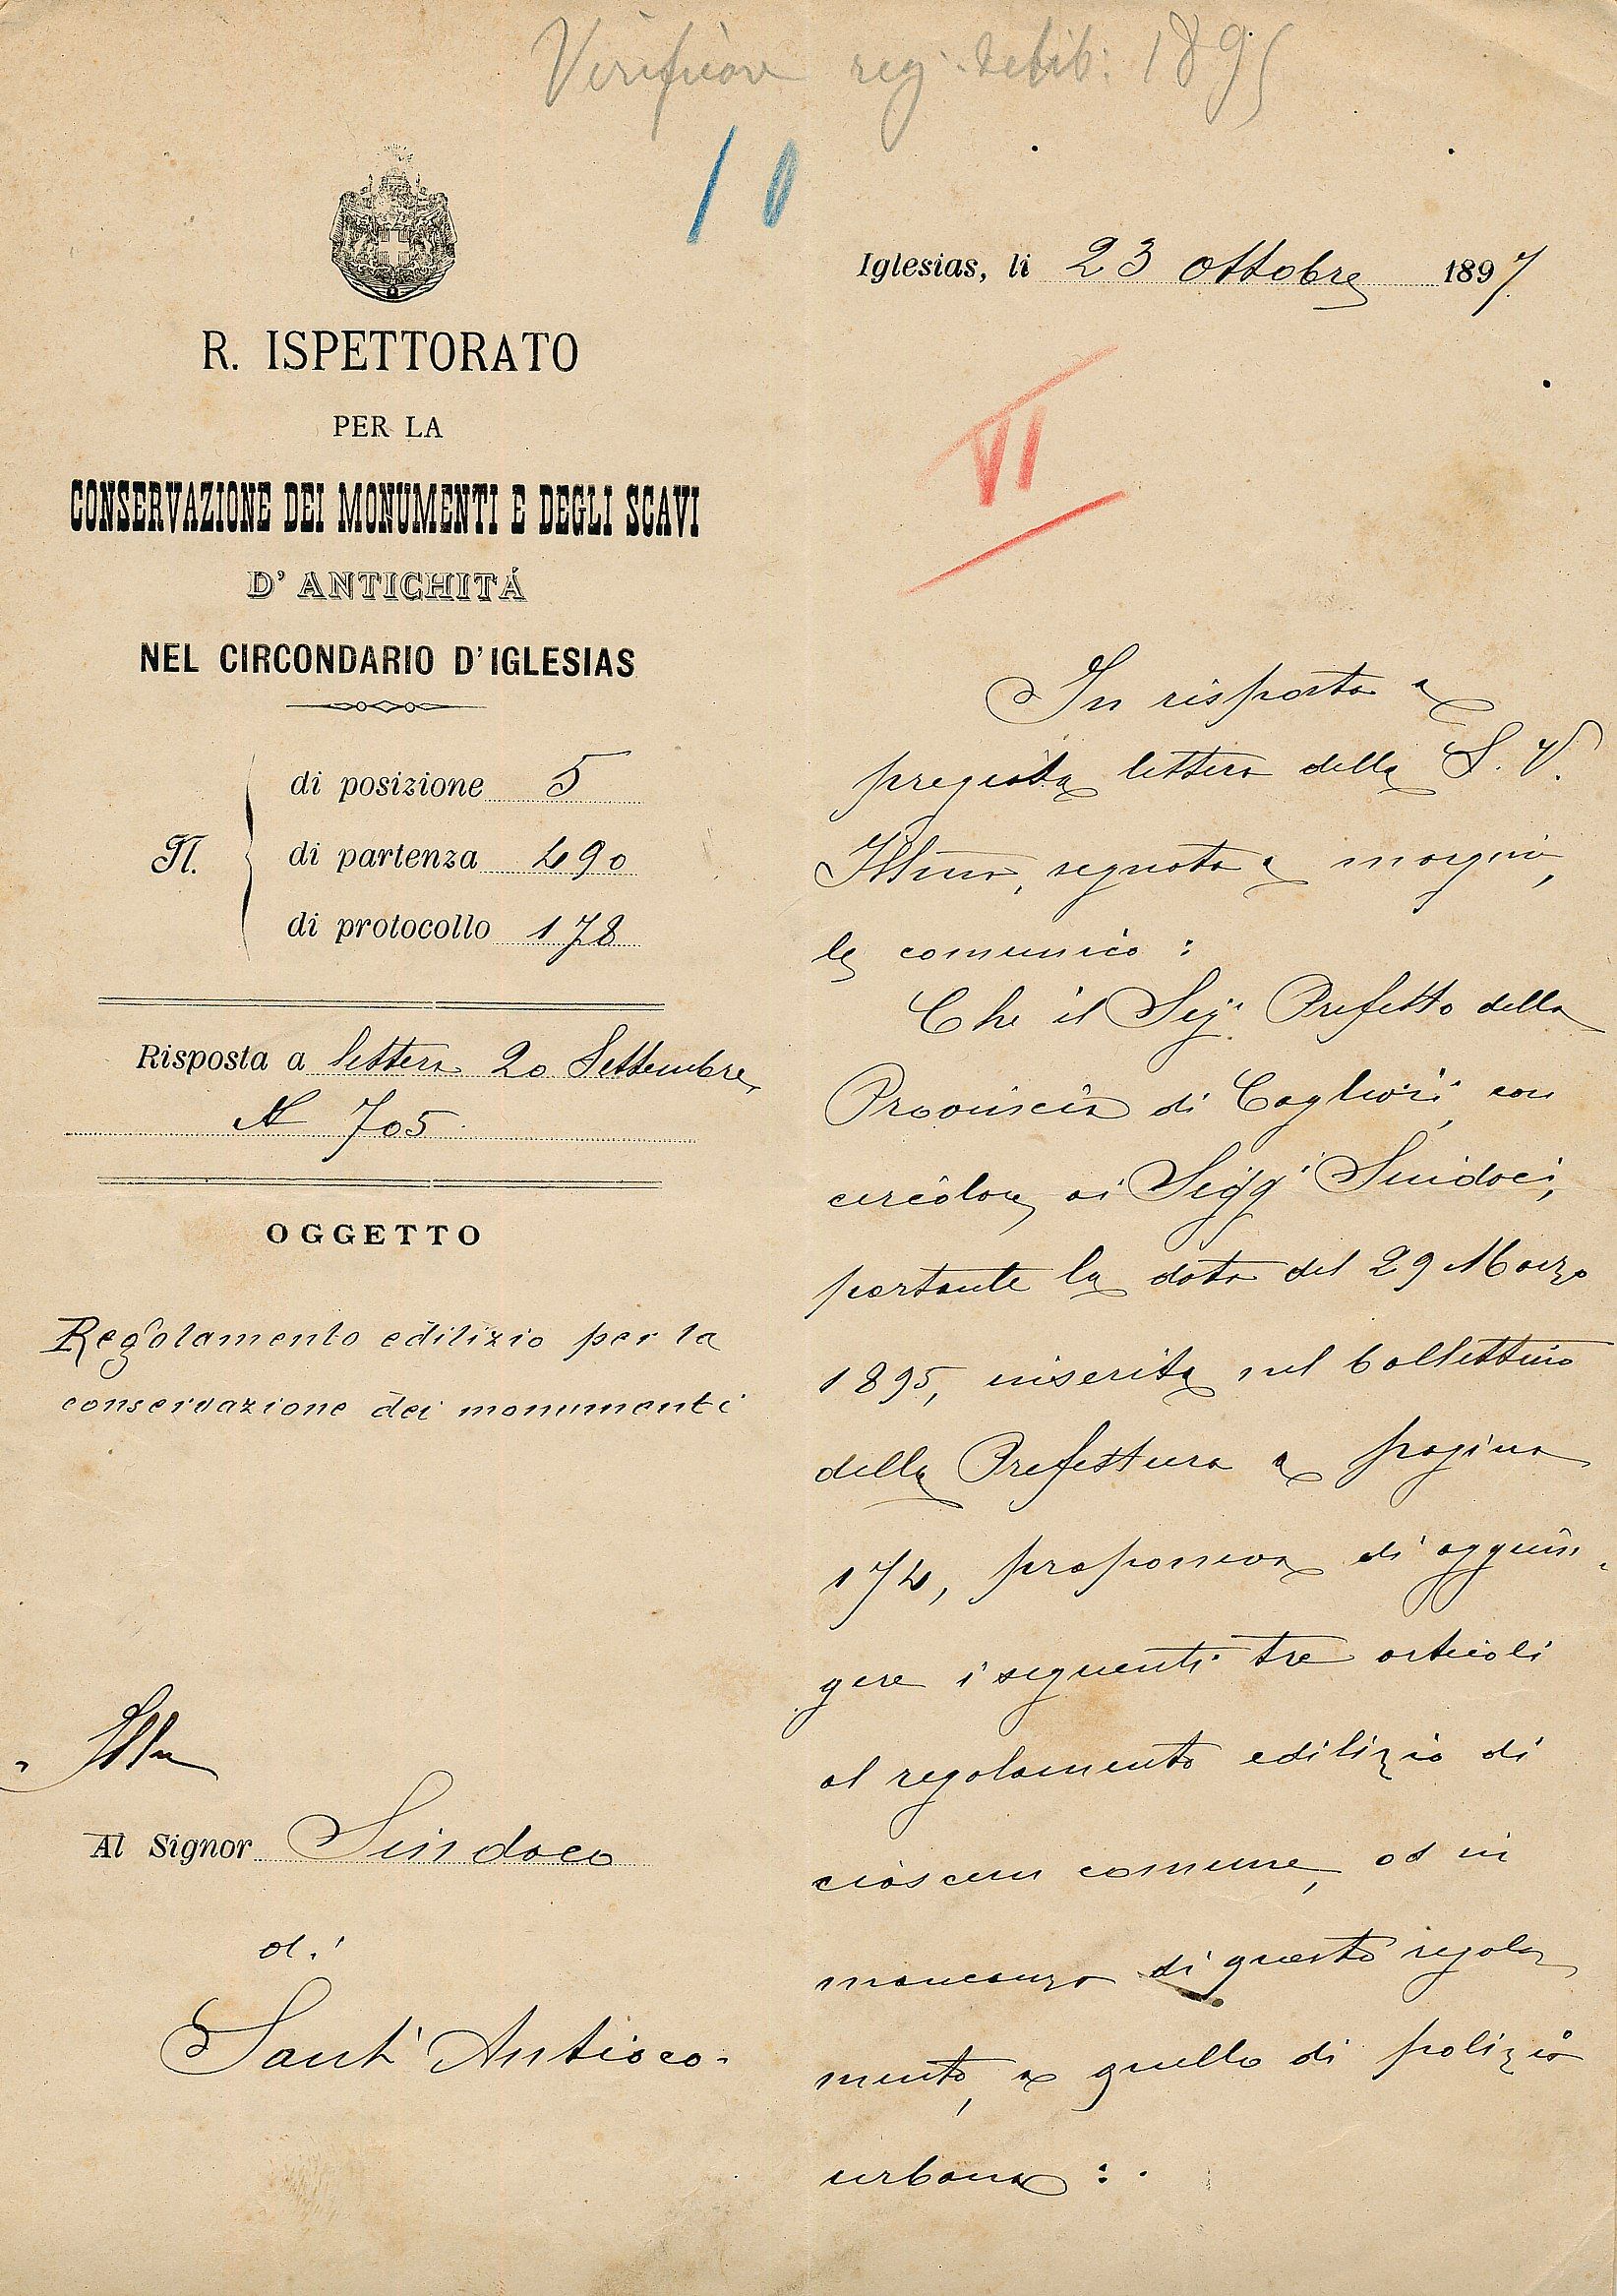 Verificare reg. delib: 1895
10
R. ISPETTORATO
PER LA
CONSERVAZIONE DEI MONUMENTI E DEGLI SCAVI
D'ANTICHITÁ
NEL CIRCONDARIO D'IGLESIAS
N.
di posizione 5
di partenza 490
di protocollo 178
Risposta a lettera 20 Settembre
N 705
OGGETTO
Regolamento edilizio per la
conservazione dei monumenti
Ill
Al Signor Sindaco
di
Sant'Antioco.
Iglesias, li 23 ottobre 1897.
VI
In risposta a
pregiata lettera della S. V.
Illma, segnata a margine,
le comunico:
Che il Sig. Prefetto della
Provincia di Cagliari, con
circolare ai Sigg Sindaci,
portante la data del 29 Marzo
1895, inserita nel bollettino
della Prefettura a pagina
174, proponeva di aggiun-
gere i seguenti tre articoli
al regolamento edilizio di
ciascun comune, od in
mancanza di questo regola
mento, a quello di polizia
urbana:.